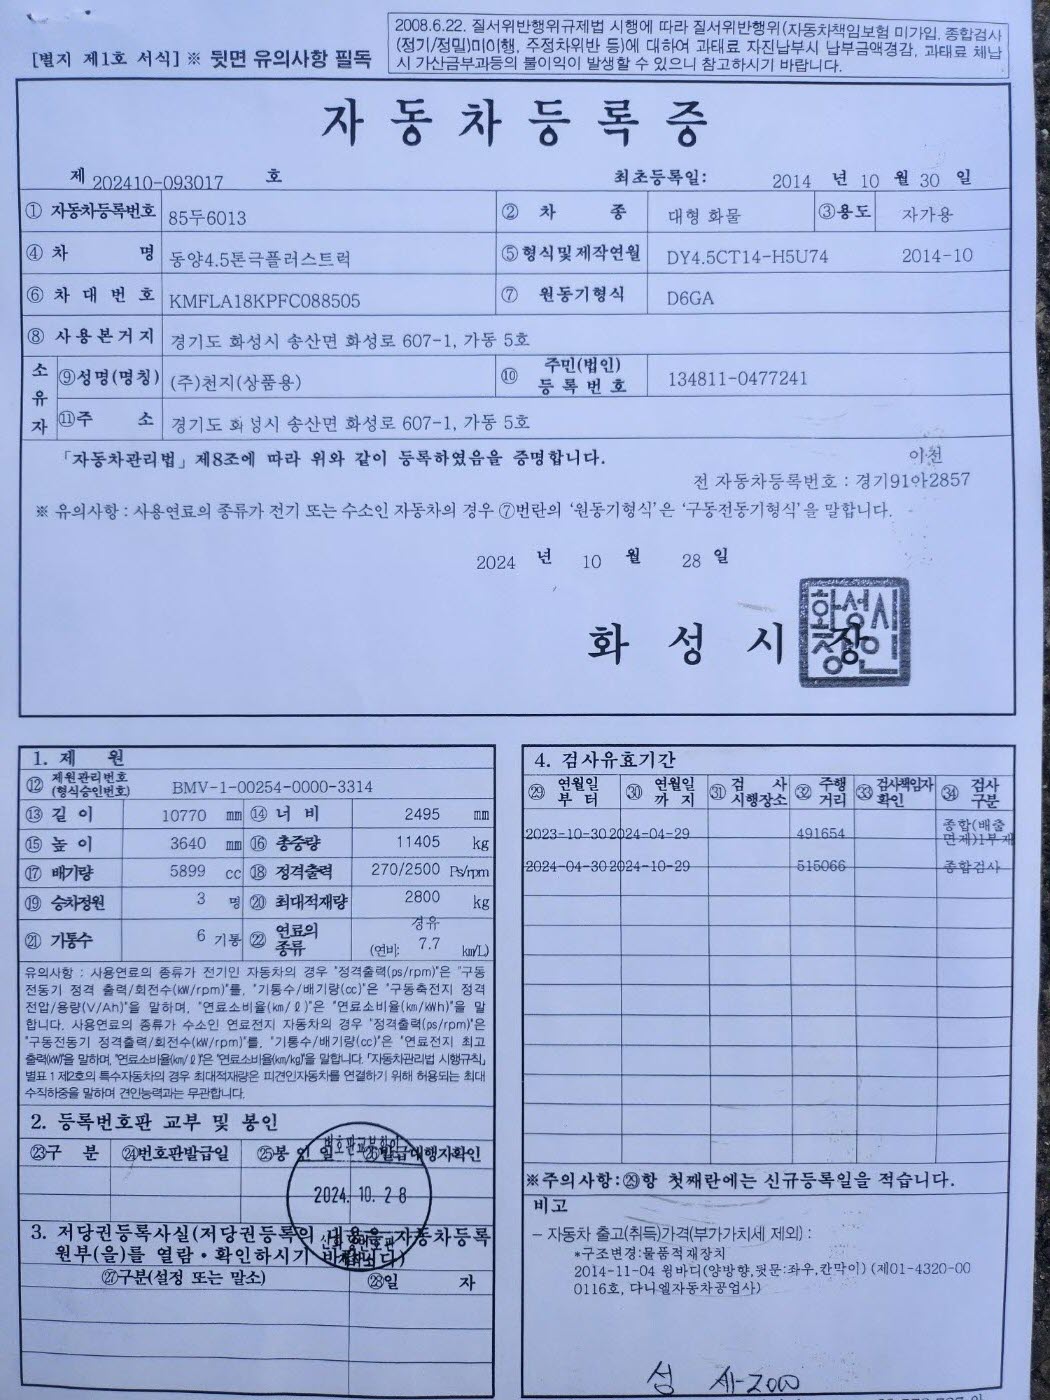 [별지 제1호 서식] ※ 뒷면 유의사항 필독
2008.6.22. 질서위반행위규제법 시행에 따라 질서위반행위(자동차책임보험 미가입, 종합검사
(정기/정밀)미이행, 주정차위반 등)에 대하여 과태료 자진납부시 납부금액경감, 과태료 체납
시 가산금부과등의 불이익이 발생할 수 있으니 참고하시기 바랍니다.
자동차등록증
제 202410-093017 호 최초등록일: 2014 년 10 월 30 일
① 자동차등록번호 85두6013 ② 차 종 대형 화물 ③용도 자가용
④ 차 명 동양4.5톤극플러스트럭 ⑤형식및제작연월 DY4.5CT14-H5U74 2014-10
⑥ 차 대 번 호 KMFLA18KPFC088505 ⑦ 원동기형식 D6GA
⑧ 사 용 본 거 지 경기도 화성시 송산면 화성로 607-1, 가동 5호
소유자 ⑨성명(명칭) (주)천지(상품용) ⑩ 주민(법인)등록번호 134811-0477241
⑪주 소 경기도 화성시 송산면 화성로 607-1, 가동 5호
「자동차관리법」제8조에 따라 위와 같이 등록하였음을 증명합니다. 이천
전 자동차등록번호 : 경기91아2857
※ 유의사항 : 사용연료의 종류가 전기 또는 수소인 자동차의 경우 ⑦번란의 '원동기형식'은 '구동전동기형식'을 말합니다.
2024 년 10 월 28 일
화 성 시 장
화성시장인
1. 제 원
⑫ 제원관리번호(형식승인번호) BMV-1-00254-0000-3314
⑬ 길 이 10770 mm ⑭ 너 비 2495 mm
⑮ 높 이 3640 mm ⑯ 총중량 11405 kg
⑰ 배기량 5899 cc ⑱ 정격출력 270/2500 Ps/rpm
⑲ 승차정원 3 명 ⑳ 최대적재량 2800 kg
㉑ 기통수 6 기통 ㉒ 연료의 종류 경유 (연비: 7.7 km/L)
유의사항 : 사용연료의 종류가 전기인 자동차의 경우 "정격출력(ps/rpm)"은 "구동
전동기 정격 출력/회전수(kW/rpm)"를, "기통수/배기량(cc)"은 "구동축전지 정격
전압/용량(V/Ah)"을 말하며, "연료소비율(km/ℓ)"은 "연료소비율(km/kWh)"을 말
합니다. 사용연료의 종류가 수소인 연료전지 자동차의 경우 "정격출력(ps/rpm)"은
"구동전동기 정격출력/회전수(kW/rpm)"를, "기통수/배기량(cc)"은 "연료전지 최고
출력(kW)"을 말하며 "연료소비율(km/ℓ)"은 "연료소비율(km/kg)"을 말합니다. 「자동차관리법 시행규칙」
별표 1 제2호의 특수자동차의 경우 최대적재량은 피견인자동차를 연결하기 위해 허용되는 최대
수직하중을 말하며 견인능력과는 무관합니다.
2. 등록번호판 교부 및 봉인
㉓구 분 ㉔번호판발급일 ㉕봉 인 일 ㉖발급대행자확인
2024. 10. 28
3. 저당권등록사실(저당권등록의 내용은 자동차등록
원부(을)를 열람·확인하시기 바랍니다)
㉗구분(설정 또는 말소) ㉘일 자
4. 검사유효기간
㉙ 연월일부터 ㉚ 연월일까지 ㉛ 검사시행장소 ㉜ 주행거리 ㉝ 검사책임자확인 ㉞ 검사구분
2023-10-30 2024-04-29 491654 종합(배출
면제)1부재
2024-04-30 2024-10-29 515066 종합검사
※주의사항:㉙항 첫째란에는 신규등록일을 적습니다.
비고
- 자동차 출고(취득)가격(부가가치세 제외) :
*구조변경:물품적재장치
2014-11-04 윙바디(양방향,뒷문:좌우,칸막이) (제01-4320-00
0116호, 다니엘자동차공업사)